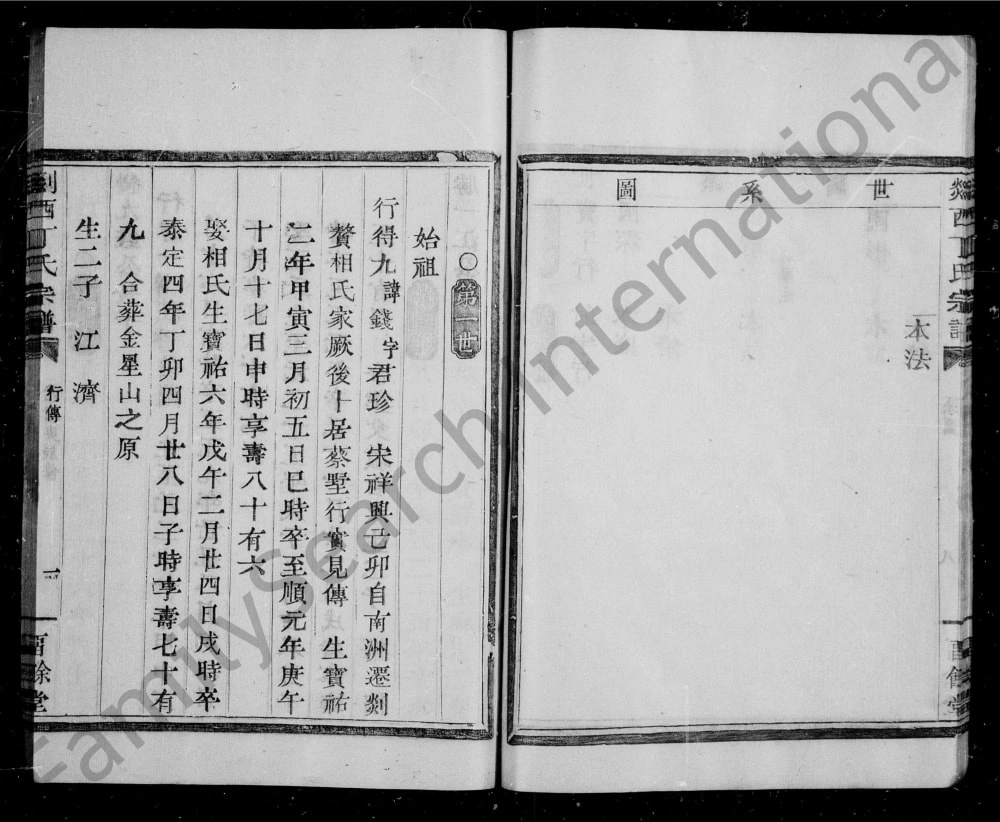 世系圖
本法
剡西丁氏宗譜
酉餘堂
○第一世
始祖
行得九諱錢字君珍 宋祥興己卯自南洲遷剡
贅相氏家厥後卜居蔡墅行實見傳 生寶祐
二年甲寅三月初五日巳時卒至順元年庚午
十月十七日申時享壽八十有六
娶相氏生寶祐六年戊午二月廿四日戌時卒
泰定四年丁卯四月廿八日子時享壽七十有
九 合葬金星山之原
生二子 江 濟
剡西丁氏宗譜 行傳 一 酉餘堂
FamilySearch International